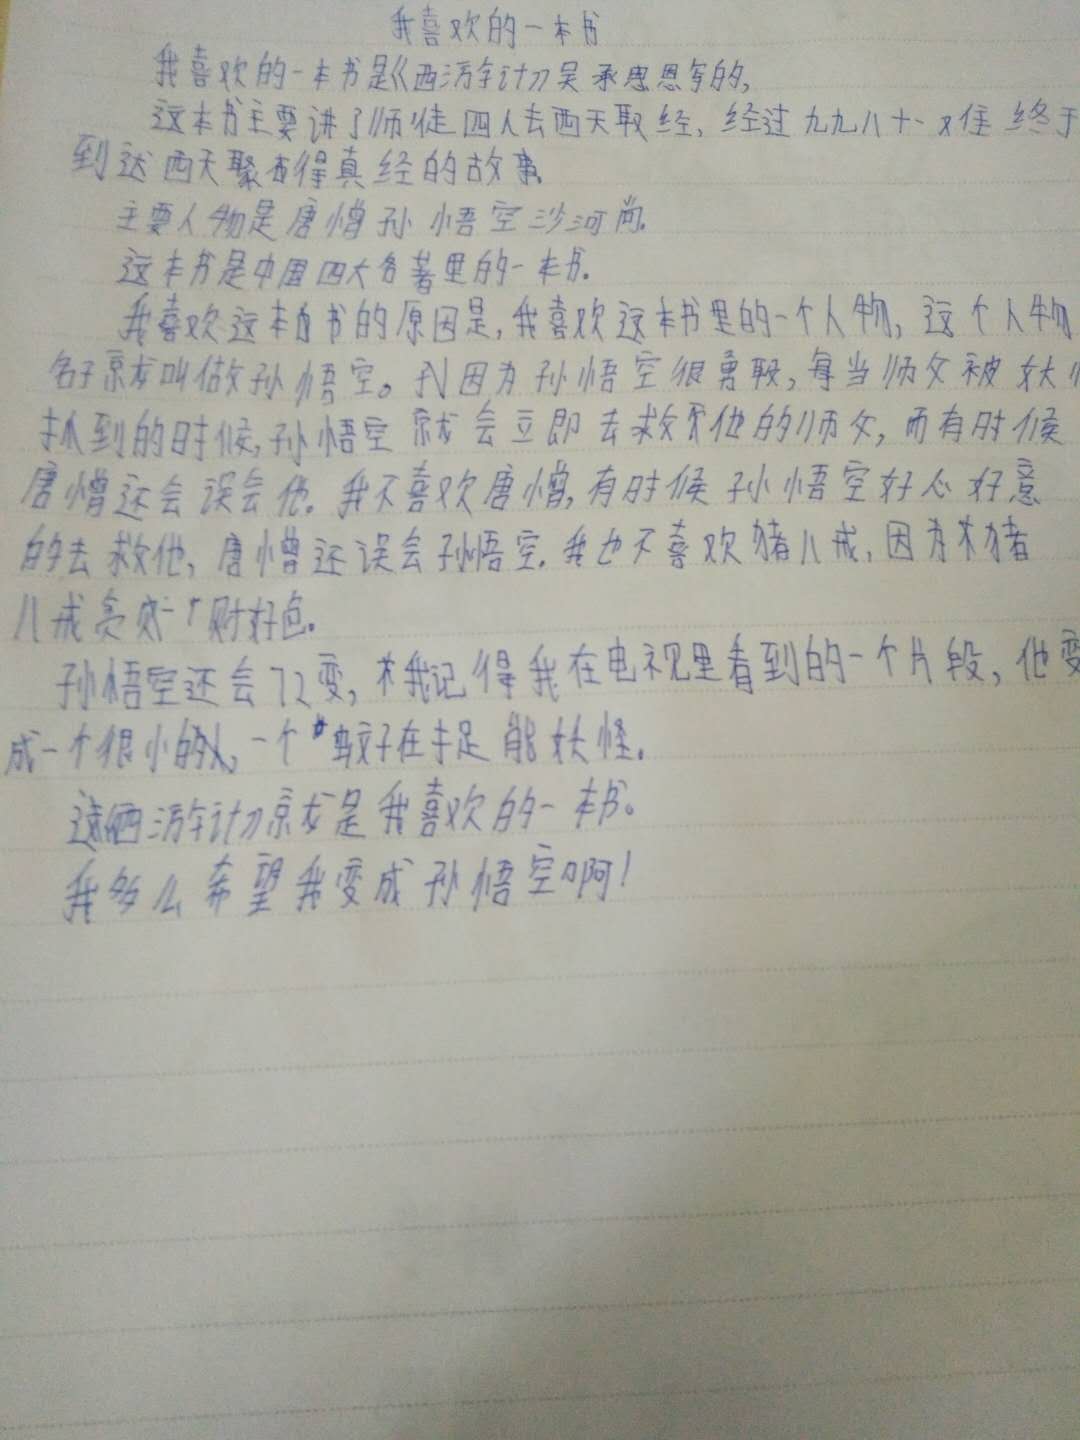 我喜欢的一本书
我喜欢的一本书是《西游记》吴承恩写的,
这本书主要讲了师徒四人去西天取经,经过九九八十一难终于
到达西天取得真经的故事
主要人物是唐憎孙悟空沙河尚.
这本书是中国四大名著里的一本书.
我喜欢这本书的原因是,我喜欢这本书里的一个人物,这个人物
名字就叫做孙悟空。因为孙悟空很勇敢,每当师父被妖
抓到的时候,孙悟空就会立即去救他的师父,而有时候
唐憎还会误会他.我不喜欢唐憎,有时候孙悟空好心好意
的去救他,唐憎还误会孙悟空.我也不喜欢猪八戒,因为猪
八戒贪财好色.
孙悟空还会72变,我记得我在电视里看到的一个片段,他变
成一个很小的,一个蚊子在捉能妖怪.
这西游记就是我喜欢的一本书。
我多么希望我变成孙悟空啊!